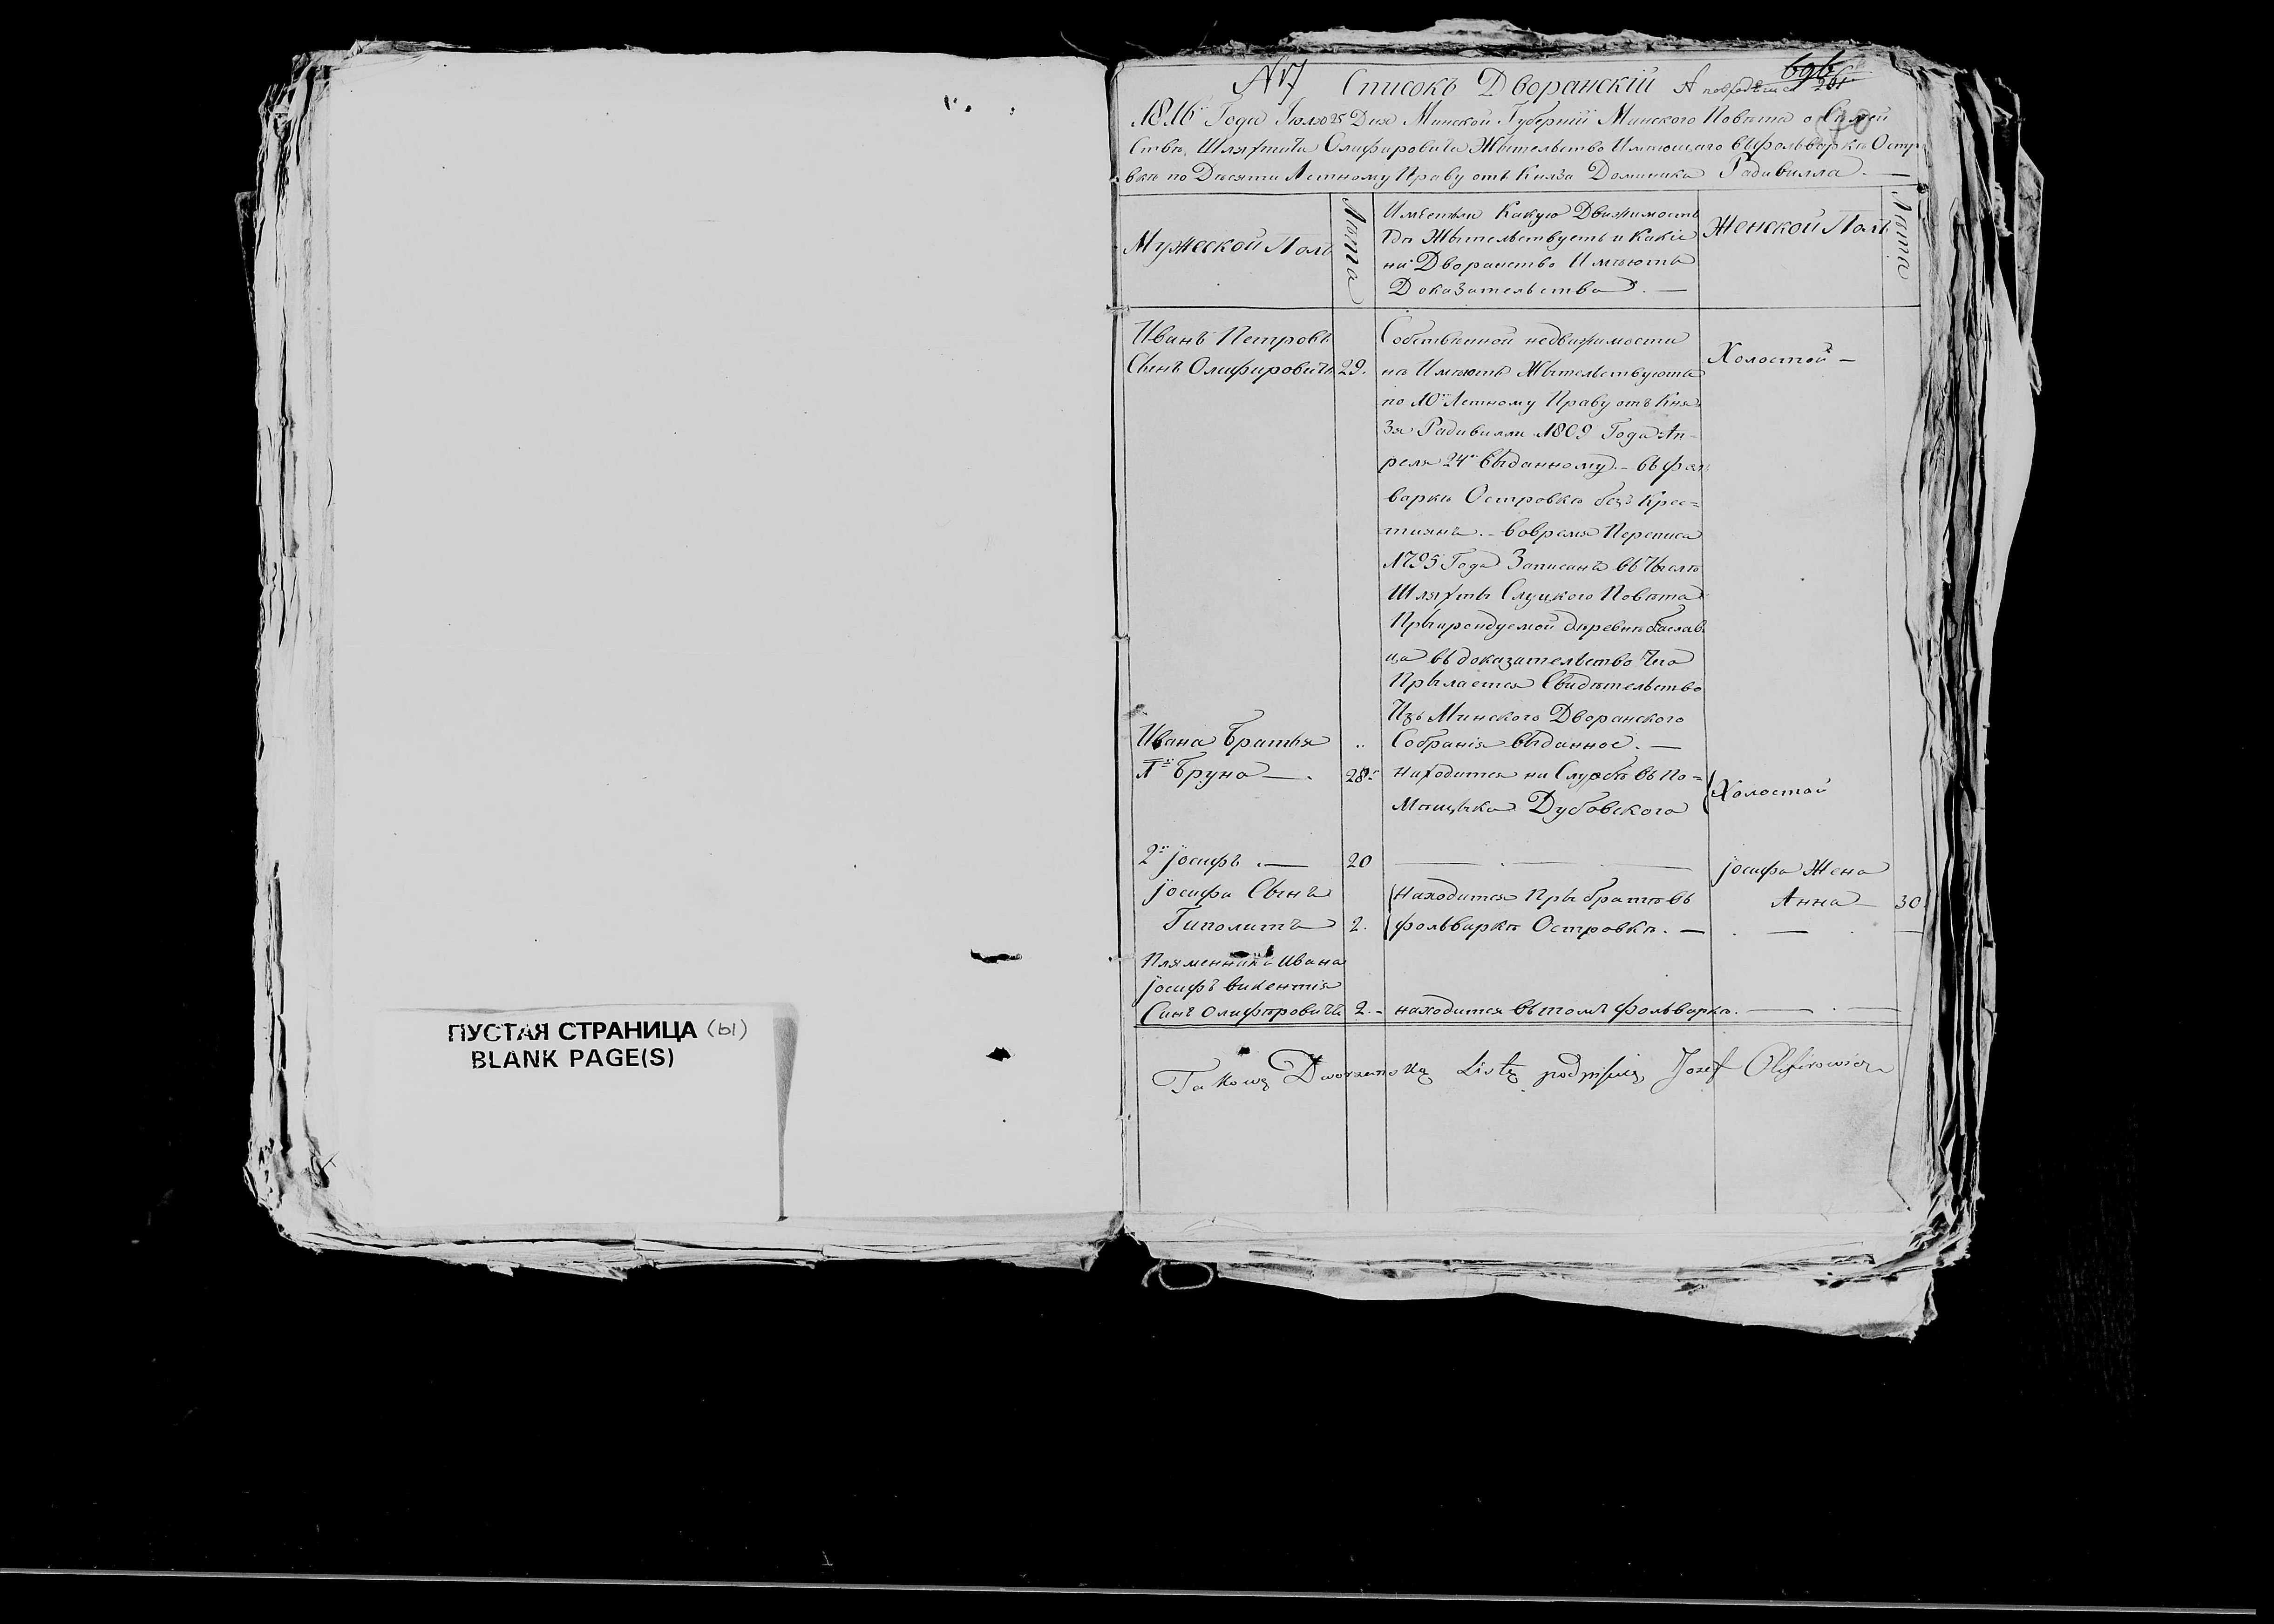 ПУСТАЯ СТРАНИЦА (ы)
BLANK PAGE(S)
N 17 Списокъ Дворанскій
696
1816 Года Іюля 25 Дня Минской Губерніи Минского Повѣта о Сѣмей
ствѣ Шляхтича Олифировича Жытельство Имѣющаго въ фольваркѣ Остро
вкѣ по Дѣсяти Летному Праву отъ Князя Доминика Радивилла. —
Мужеской Полъ
Лѣта
Имѣетъли Какую Движимость
гдѣ Жытельствуетъ и Какіе
на Дворанство Имѣютъ
Доказательства. —
Женской Полъ
Лѣта
Иванъ Петровъ
Сынъ Олифировичъ 29.
Собственной недвижимости
не Имѣютъ Жытельствуютъ
по 10 Летному Праву отъ Кня
зя Радивилла 1809 Года Ап-
реля 24 выданному - въ фол
варкѣ Островкѣ безъ Крес=
тиянъ. - вовремя Переписа
1795 Года Записанъ въ Числѣ
Шляхты Слуцкого Повѣта
Пры арендуемой дѣревнѣ Баслав
ца въ доказательство Чего
Прылается Свидѣтельство
Изъ Минского Дворанского
Собранія выданное. —
Холостой —
Ивана Братья ..
1й Бруно — . 28 находится на Службѣ въ По=
мѣщыка Дубовского
Холостой
2й Іосифъ . — 20 — . —
Іосифа Жена
Анна — 30.
Іосифа Сынъ
Гиполитъ 2.
Находится Пры братѣ въ
фольваркѣ Островкѣ. — . — .
Пляменникъ Ивана
Іосифъ викентія
Синъ Олифировичъ 2. - находится въ томъ фольваркѣ. — . —
Takową Dworzanską Listę podpisuię Jozef Olifirowicz